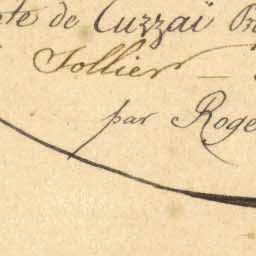 de Cuzzaï
Tollier
par Roge